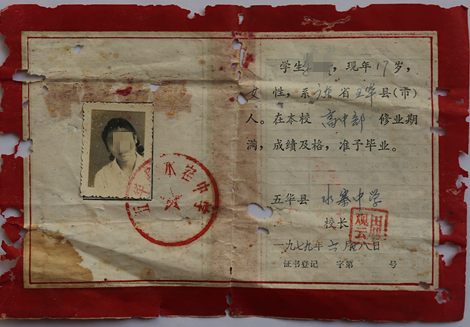 学生，现年17岁，
女性，系广东省五华县(市)
人。在本校高中部修业期
满，成绩及格，准予毕业。
五华县水寨中学
校长
一九七九年六月八日
证书登记 字第 号